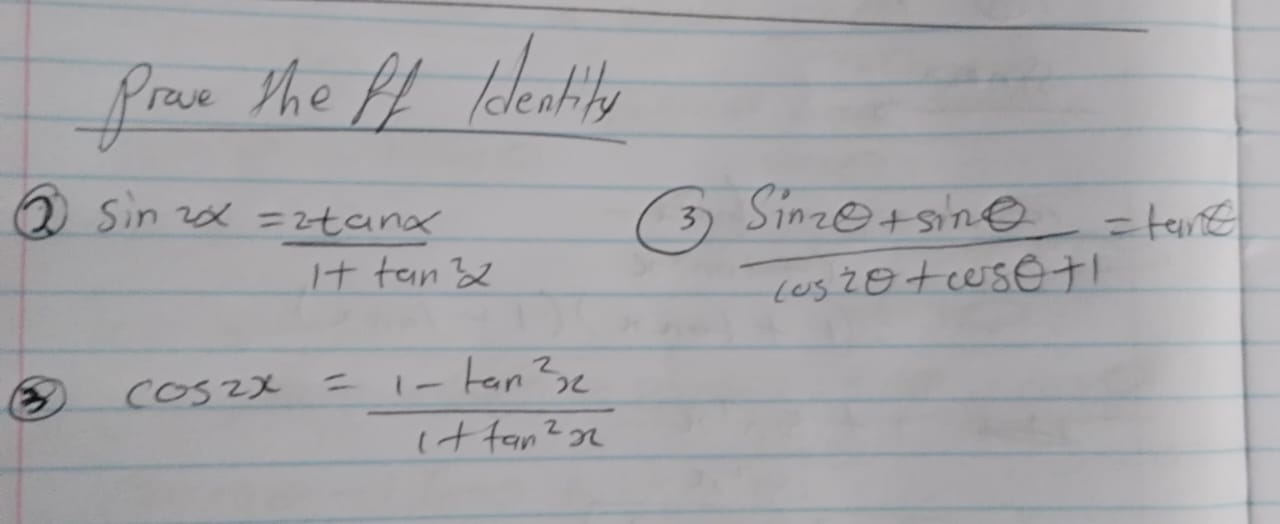 Prove the ff Identity
② sin 2x = 2tanx / 1 + tan²x
③ Sin2θ + sinθ / cos2θ + cosθ + 1 = tanθ
③ cos2x = 1 - tan²x / 1 + tan²x